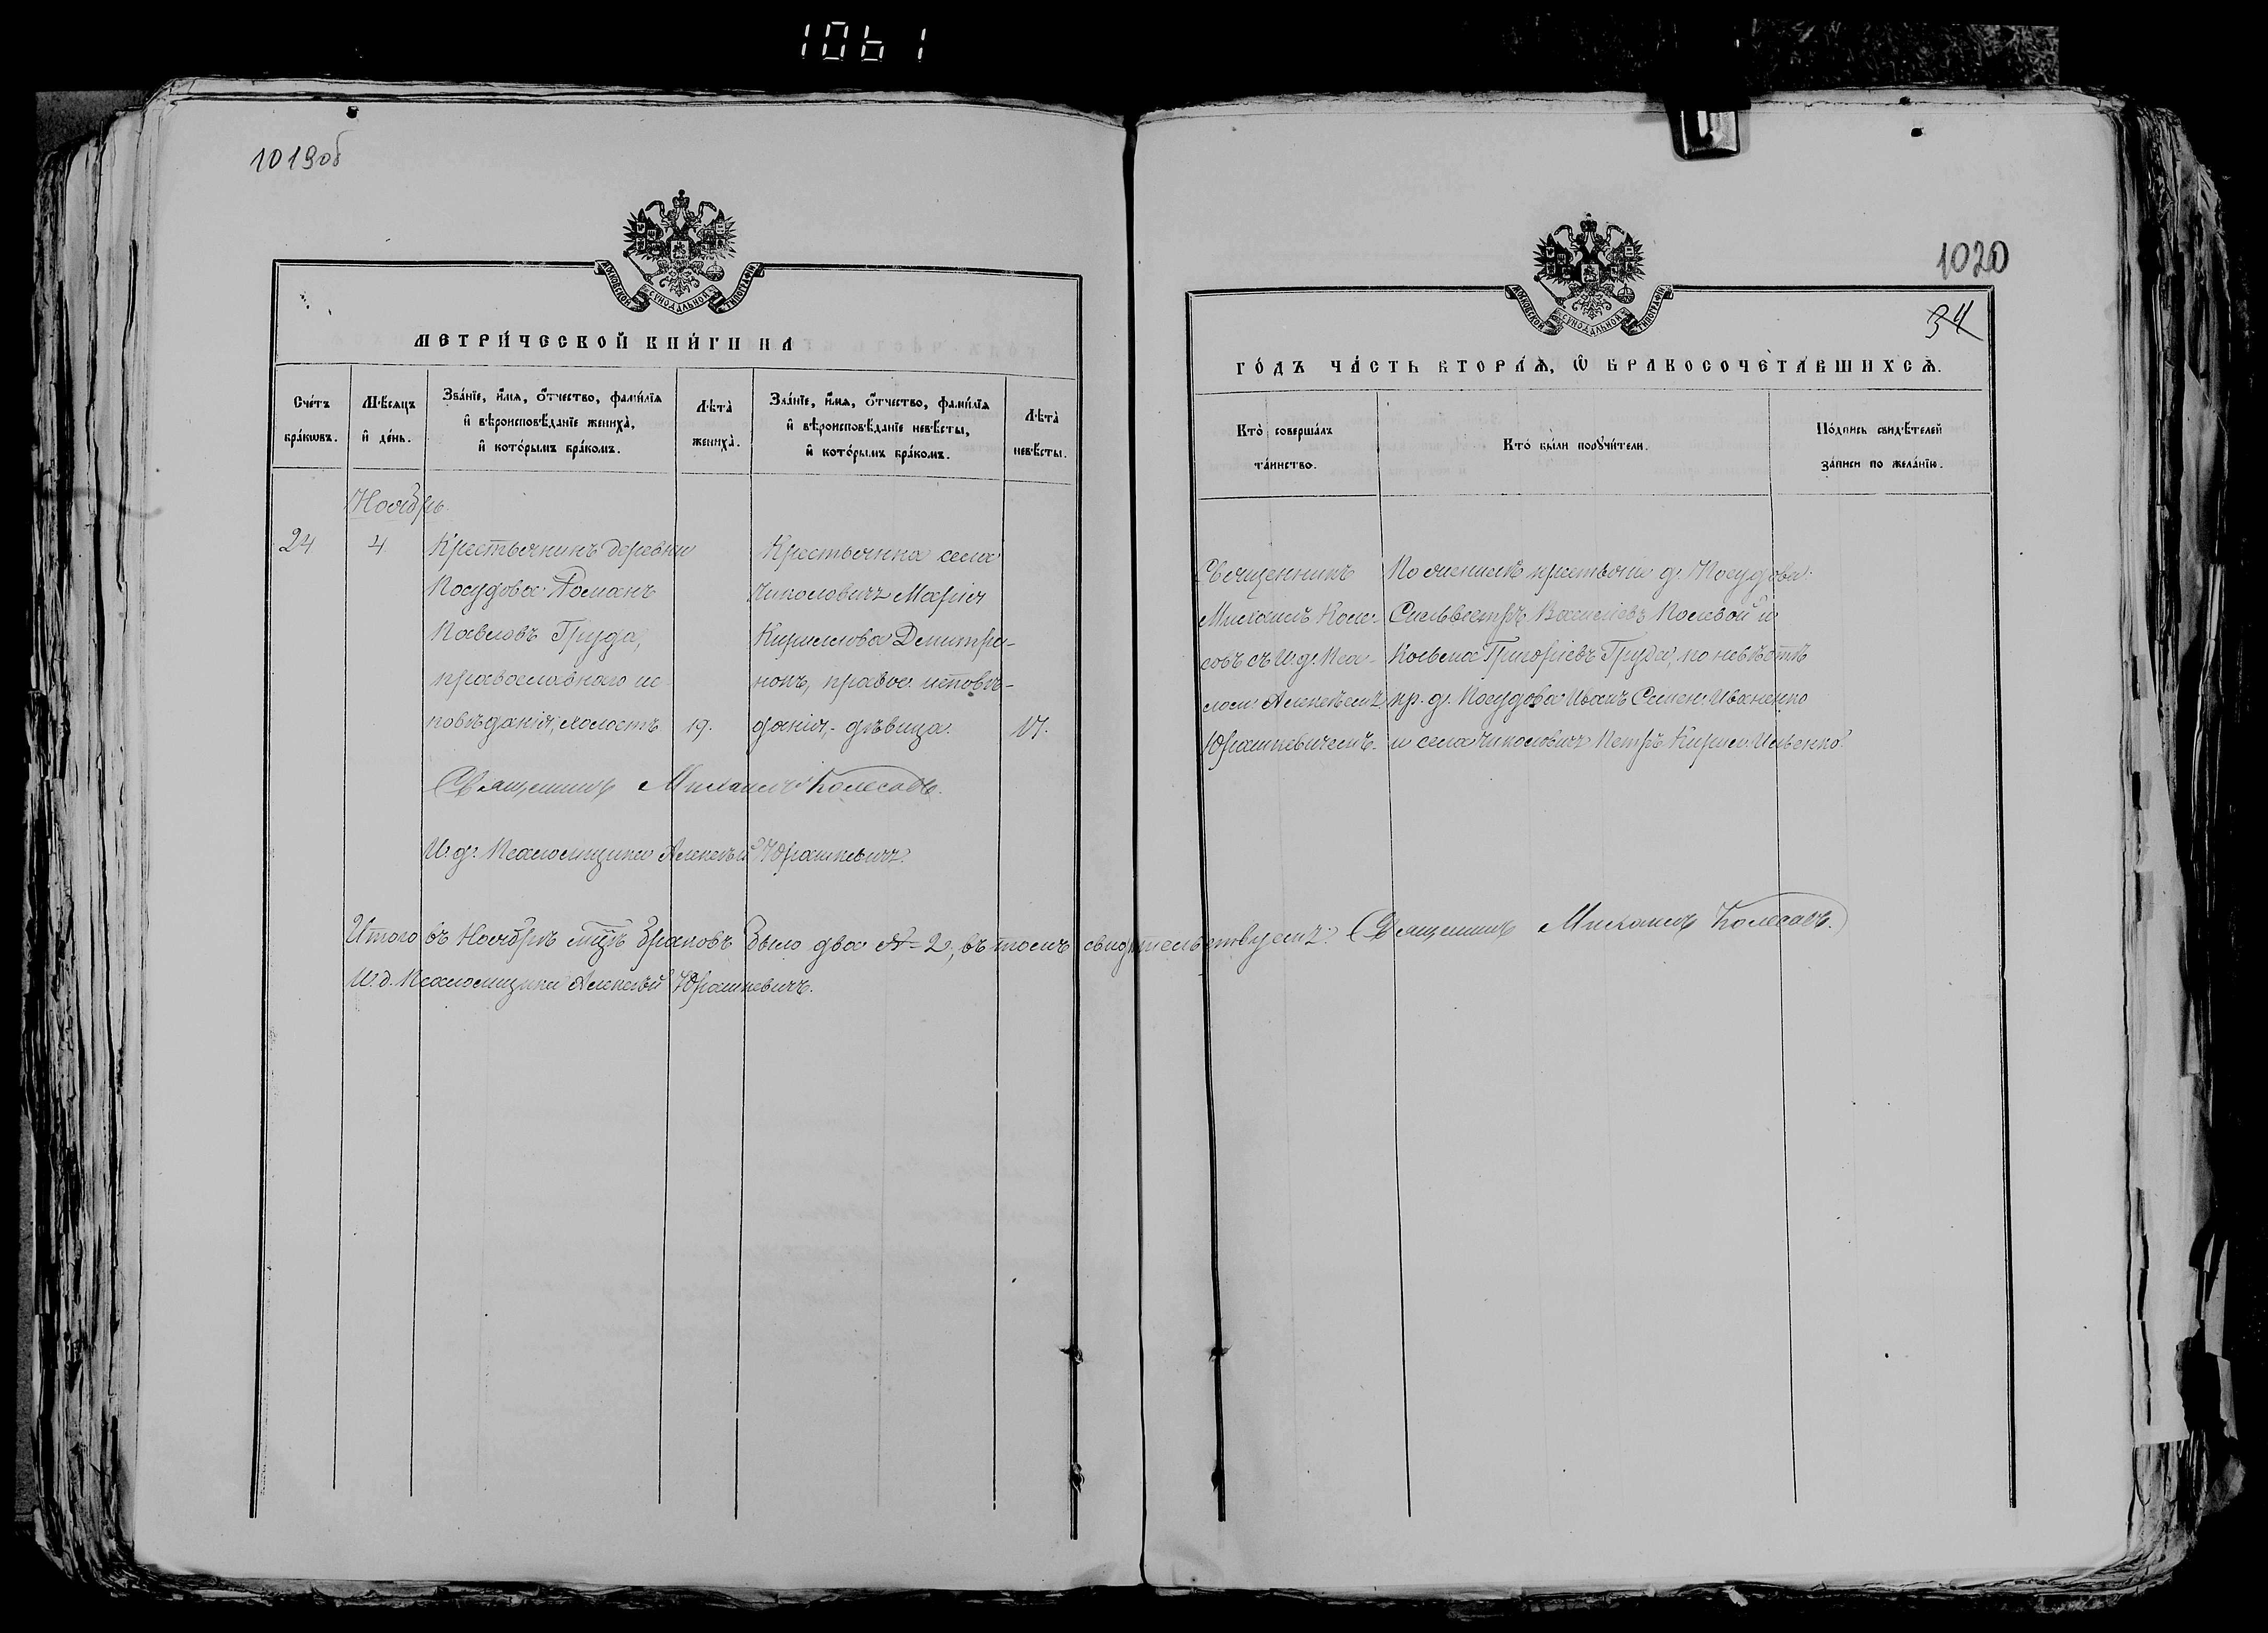 1061
1019об
МОСКОВСКОЙ СѴНОДАЛЬНОЙ ТИПОГРАФІИ
МЕТРИ́ЧЕСКОЙ КНИ́ГИ НА
Сче́тъ бра́кѡвъ.
Мѣ́сяцъ и҆ де́нь.
Зва́нїе, и҆́мя, ѻ҆́тчество, фами́лїя и҆ вѣроисповѣ́данїе жениха̀, и҆ кото́рымъ бра́комъ.
Лѣта̀ жениха̀.
Зва́нїе, и҆́мя, ѻ҆́тчество, фами́лїя и҆ вѣроисповѣ́данїе невѣ́сты, и҆ кото́рымъ бра́комъ.
Лѣта̀ невѣ́сты.
Ноябрь
24
4
Крестьянинъ деревни
Посудова Романъ
Павловъ Груда,
православнаго ис-
повѣданія, холостъ
19.
Крестьянка села
Чиколовичъ Марія
Кириллова Дмитре-
нокъ, правос. исповѣ-
данія, - дѣвица.
17.
Священникъ Михаилъ Колесовъ.
И. д. Псаломщика Алексѣй Юрашкевичъ.
Итого въ Ноябрѣ мцѣ браковъ было два № = 2, въ томъ свидѣтельствуемъ: Священникъ Михаилъ Колесовъ.
И. д. Псаломщика Алексѣй Юрашкевичъ.
1020
34
МОСКОВСКОЙ СѴНОДАЛЬНОЙ ТИПОГРАФІИ
ГО́ДЪ ЧА́СТЬ ВТОРА́Ѧ, Ѽ БРАКОСОЧЕТА́ВШИХСѦ.
Кто̀ соверша́лъ та́инство.
Кто̀ бы́ли порꙋчи́тели.
По́дпись свидѣ́телей за́писи по жела́нїю.
Священникъ
Михаилъ Коле-
совъ съ И. д. Пса-
лом. Алексѣемъ
Юрашкевичемъ.
По женихѣ крестьяне д. Посудова:
Сильвестръ Васильевъ Полевой и
Косьма Григорьевъ Груда, по невѣстѣ
кр. д. Посудова Иванъ Семен. Иваненко
и села Чиколовичъ Петръ Кирил. Ильенко.